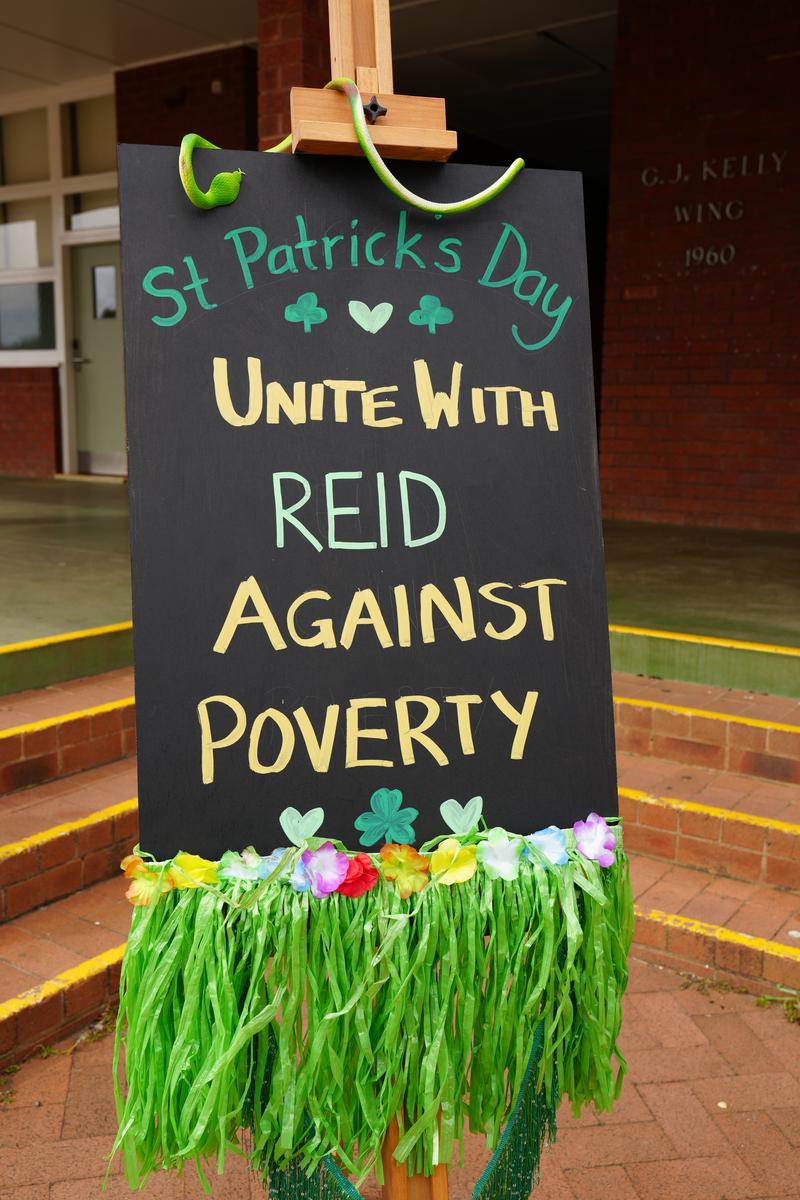 St Patrick's Day
UNITE WITH
REID
AGAINST
POVERTY
G.J. KELLY
WING
1960